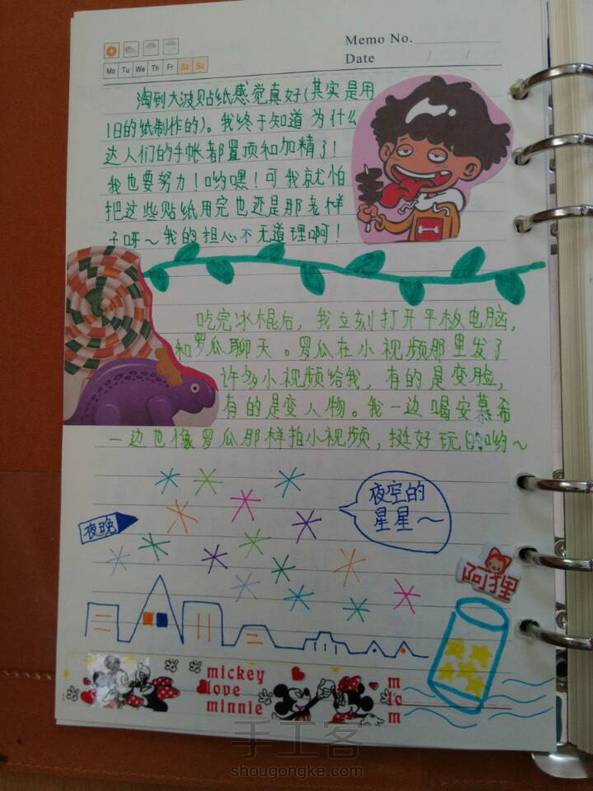 Memo No.
Date
Mo Tu We Th Fr Sa Su
淘到大波贴纸感觉真好(其实是用
旧的纸制作的)。我终于知道为什么
达人们的手帐都置顶和加精了!
我也要努力!哟嘿!可我就怕
把这些贴纸用完也还是那老样
子呀~我的担心不无道理啊!
吃完冰棍后,我立刻打开平板电脑,
和罗瓜聊天。罗瓜在小视频那里发了
许多小视频给我,有的是变脸,
有的是变人物。我一边喝安慕希
一边也像罗瓜那样拍小视频,挺好玩的哟~
夜空的
星星~
夜晚
阿狸
mickey
love
minnie
m
lo
m
手工客
shougongke.com